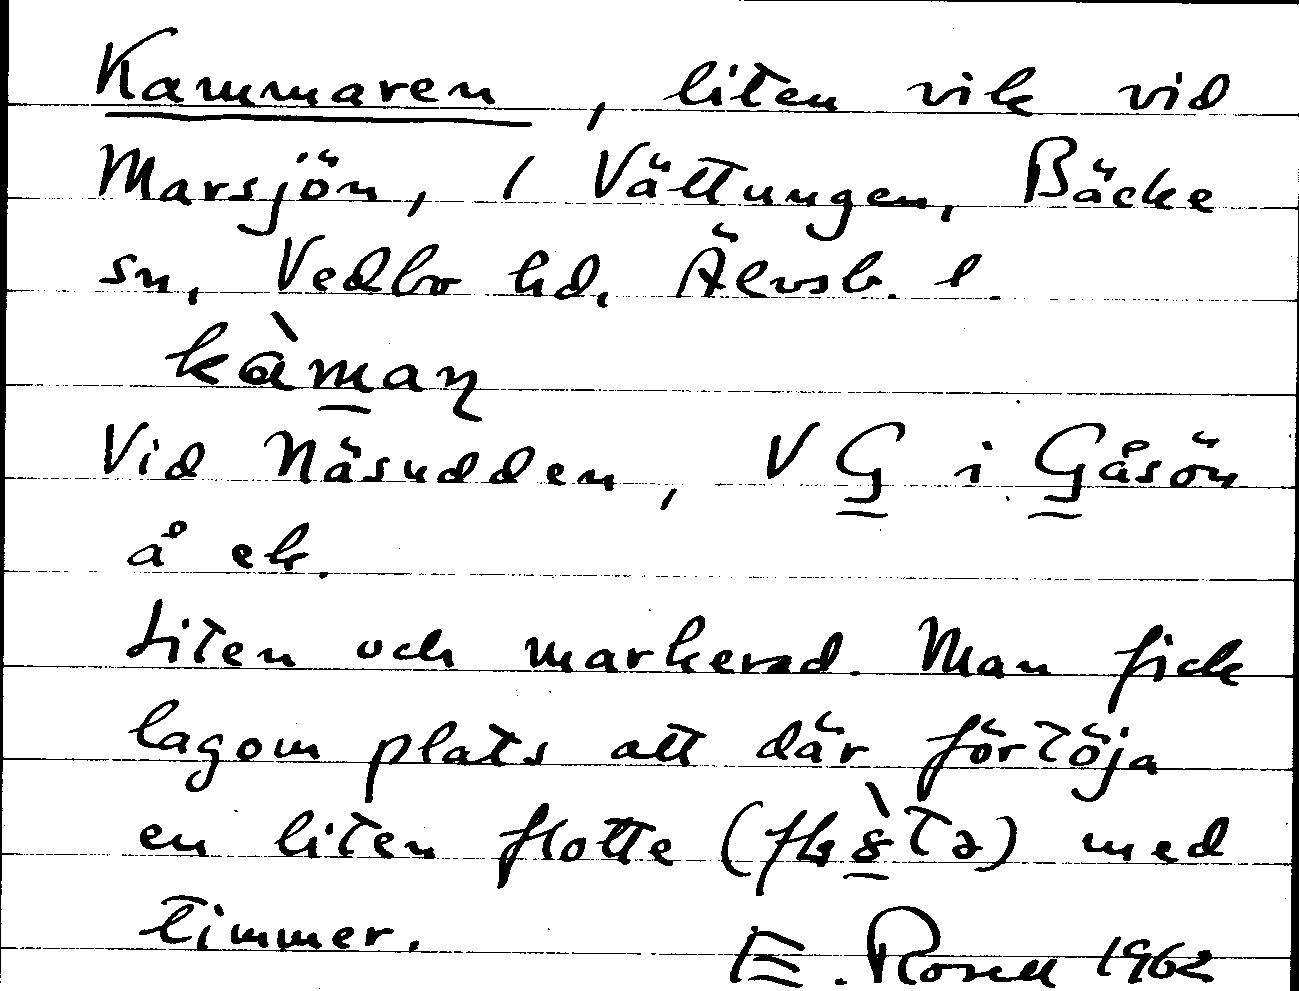 Kammaren, liten vik vid
Marsjön, / Vättungen, Bäcke
sn, Vedbo hd, Älvsb. l.
kàmaɳ
Vid Näsudden, V G i Gåsön
å ek.
Liten och markerad. Man fick
lagom plats att där förtöja
en liten flotte ( ) med
timmer. E. Rosell 1962